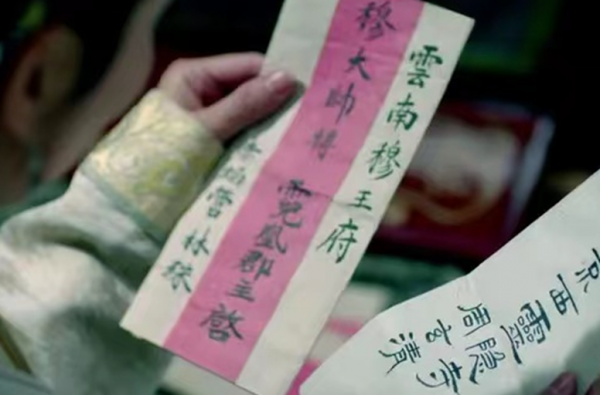 雲南穆王府
穆大帥轉
霓凰郡主啓
焰營林殊
京西靈隐寺
周玄清